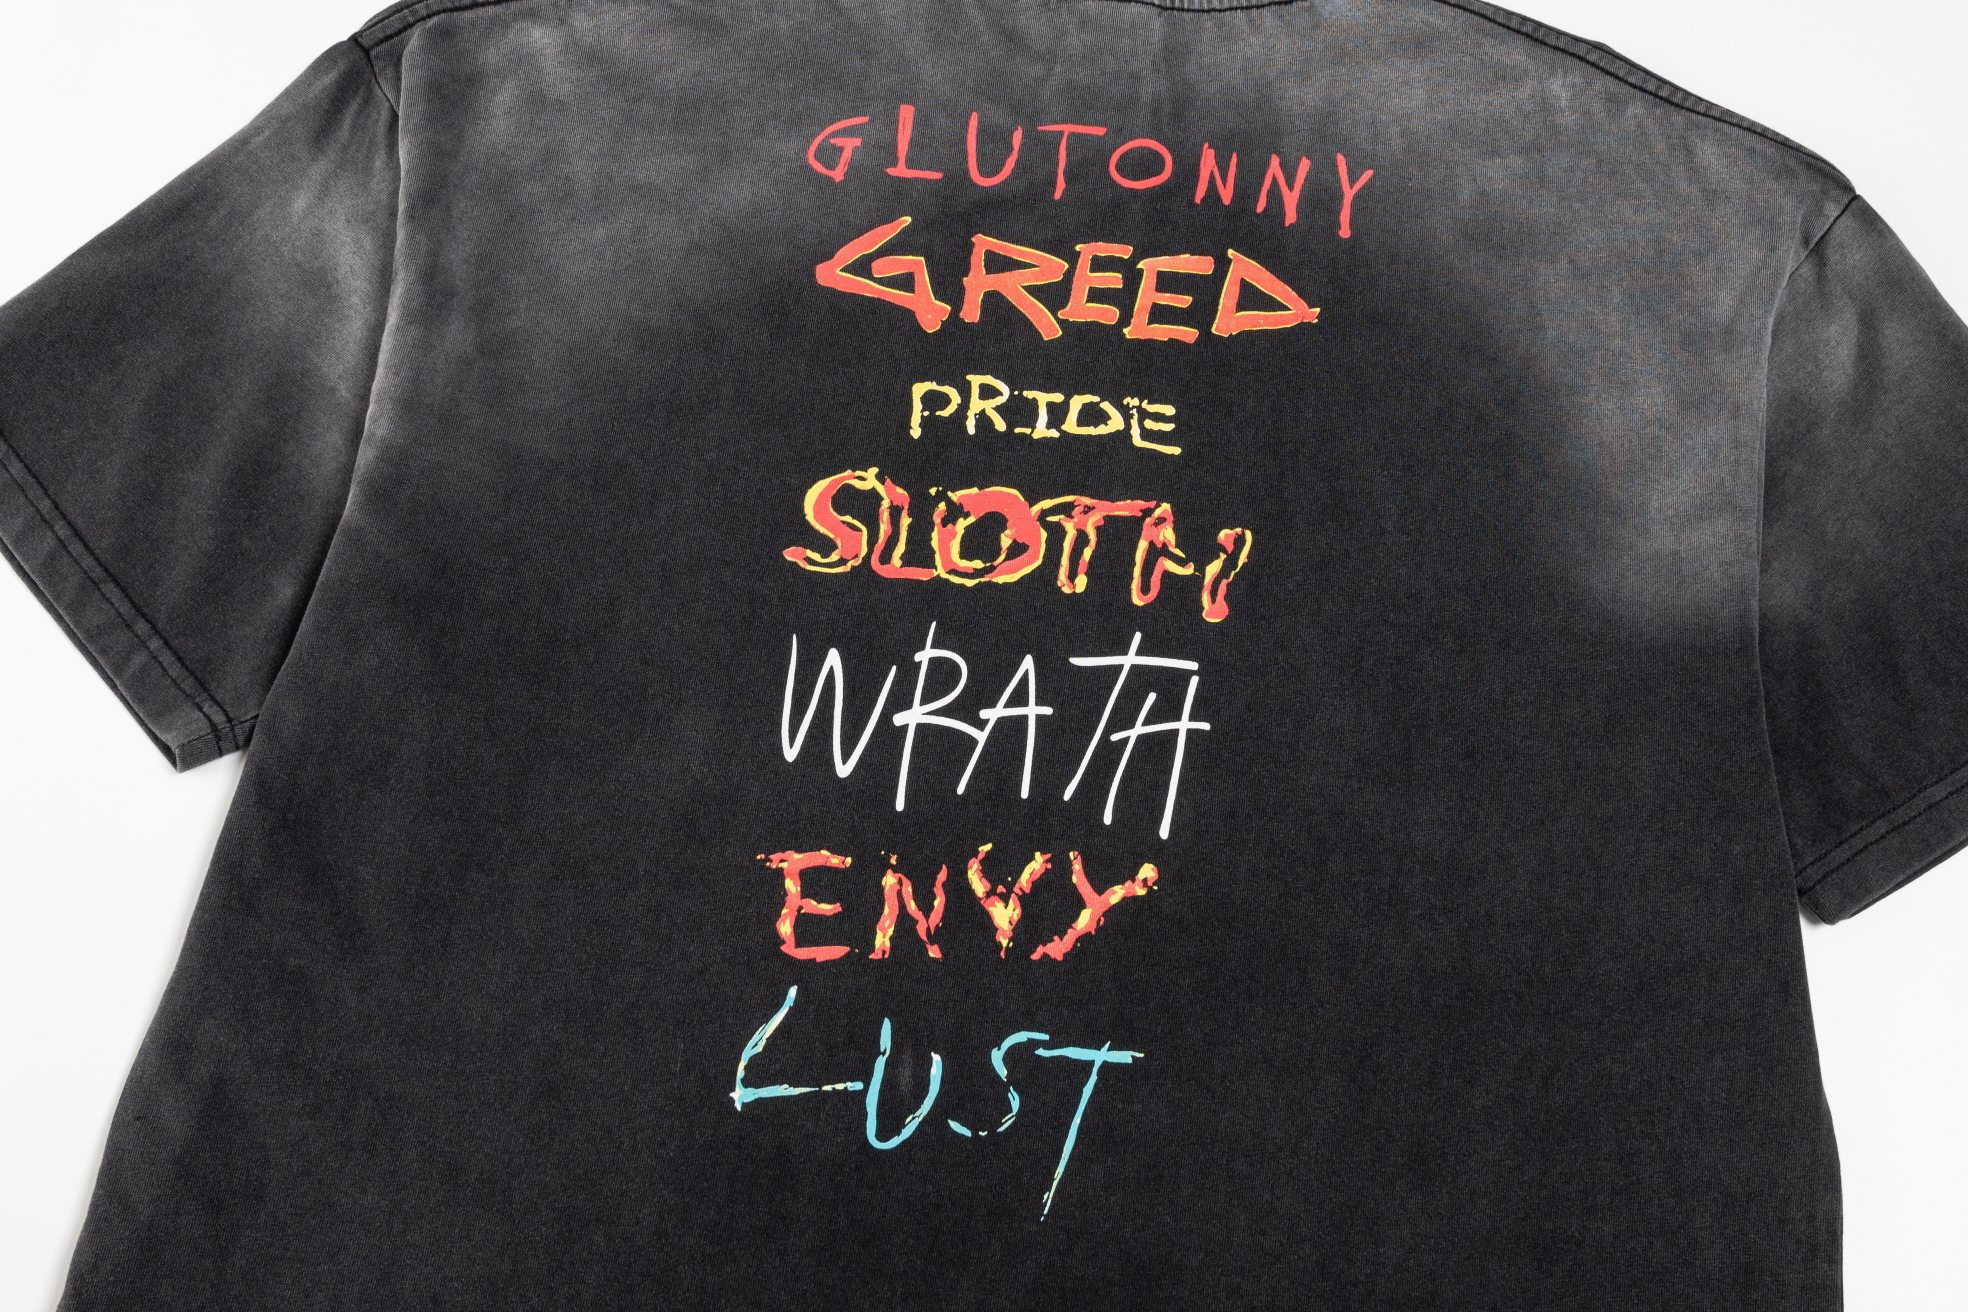 GLUTONNY
GREED
PRIDE
SLOTH
WRATH
ENVY
LUST